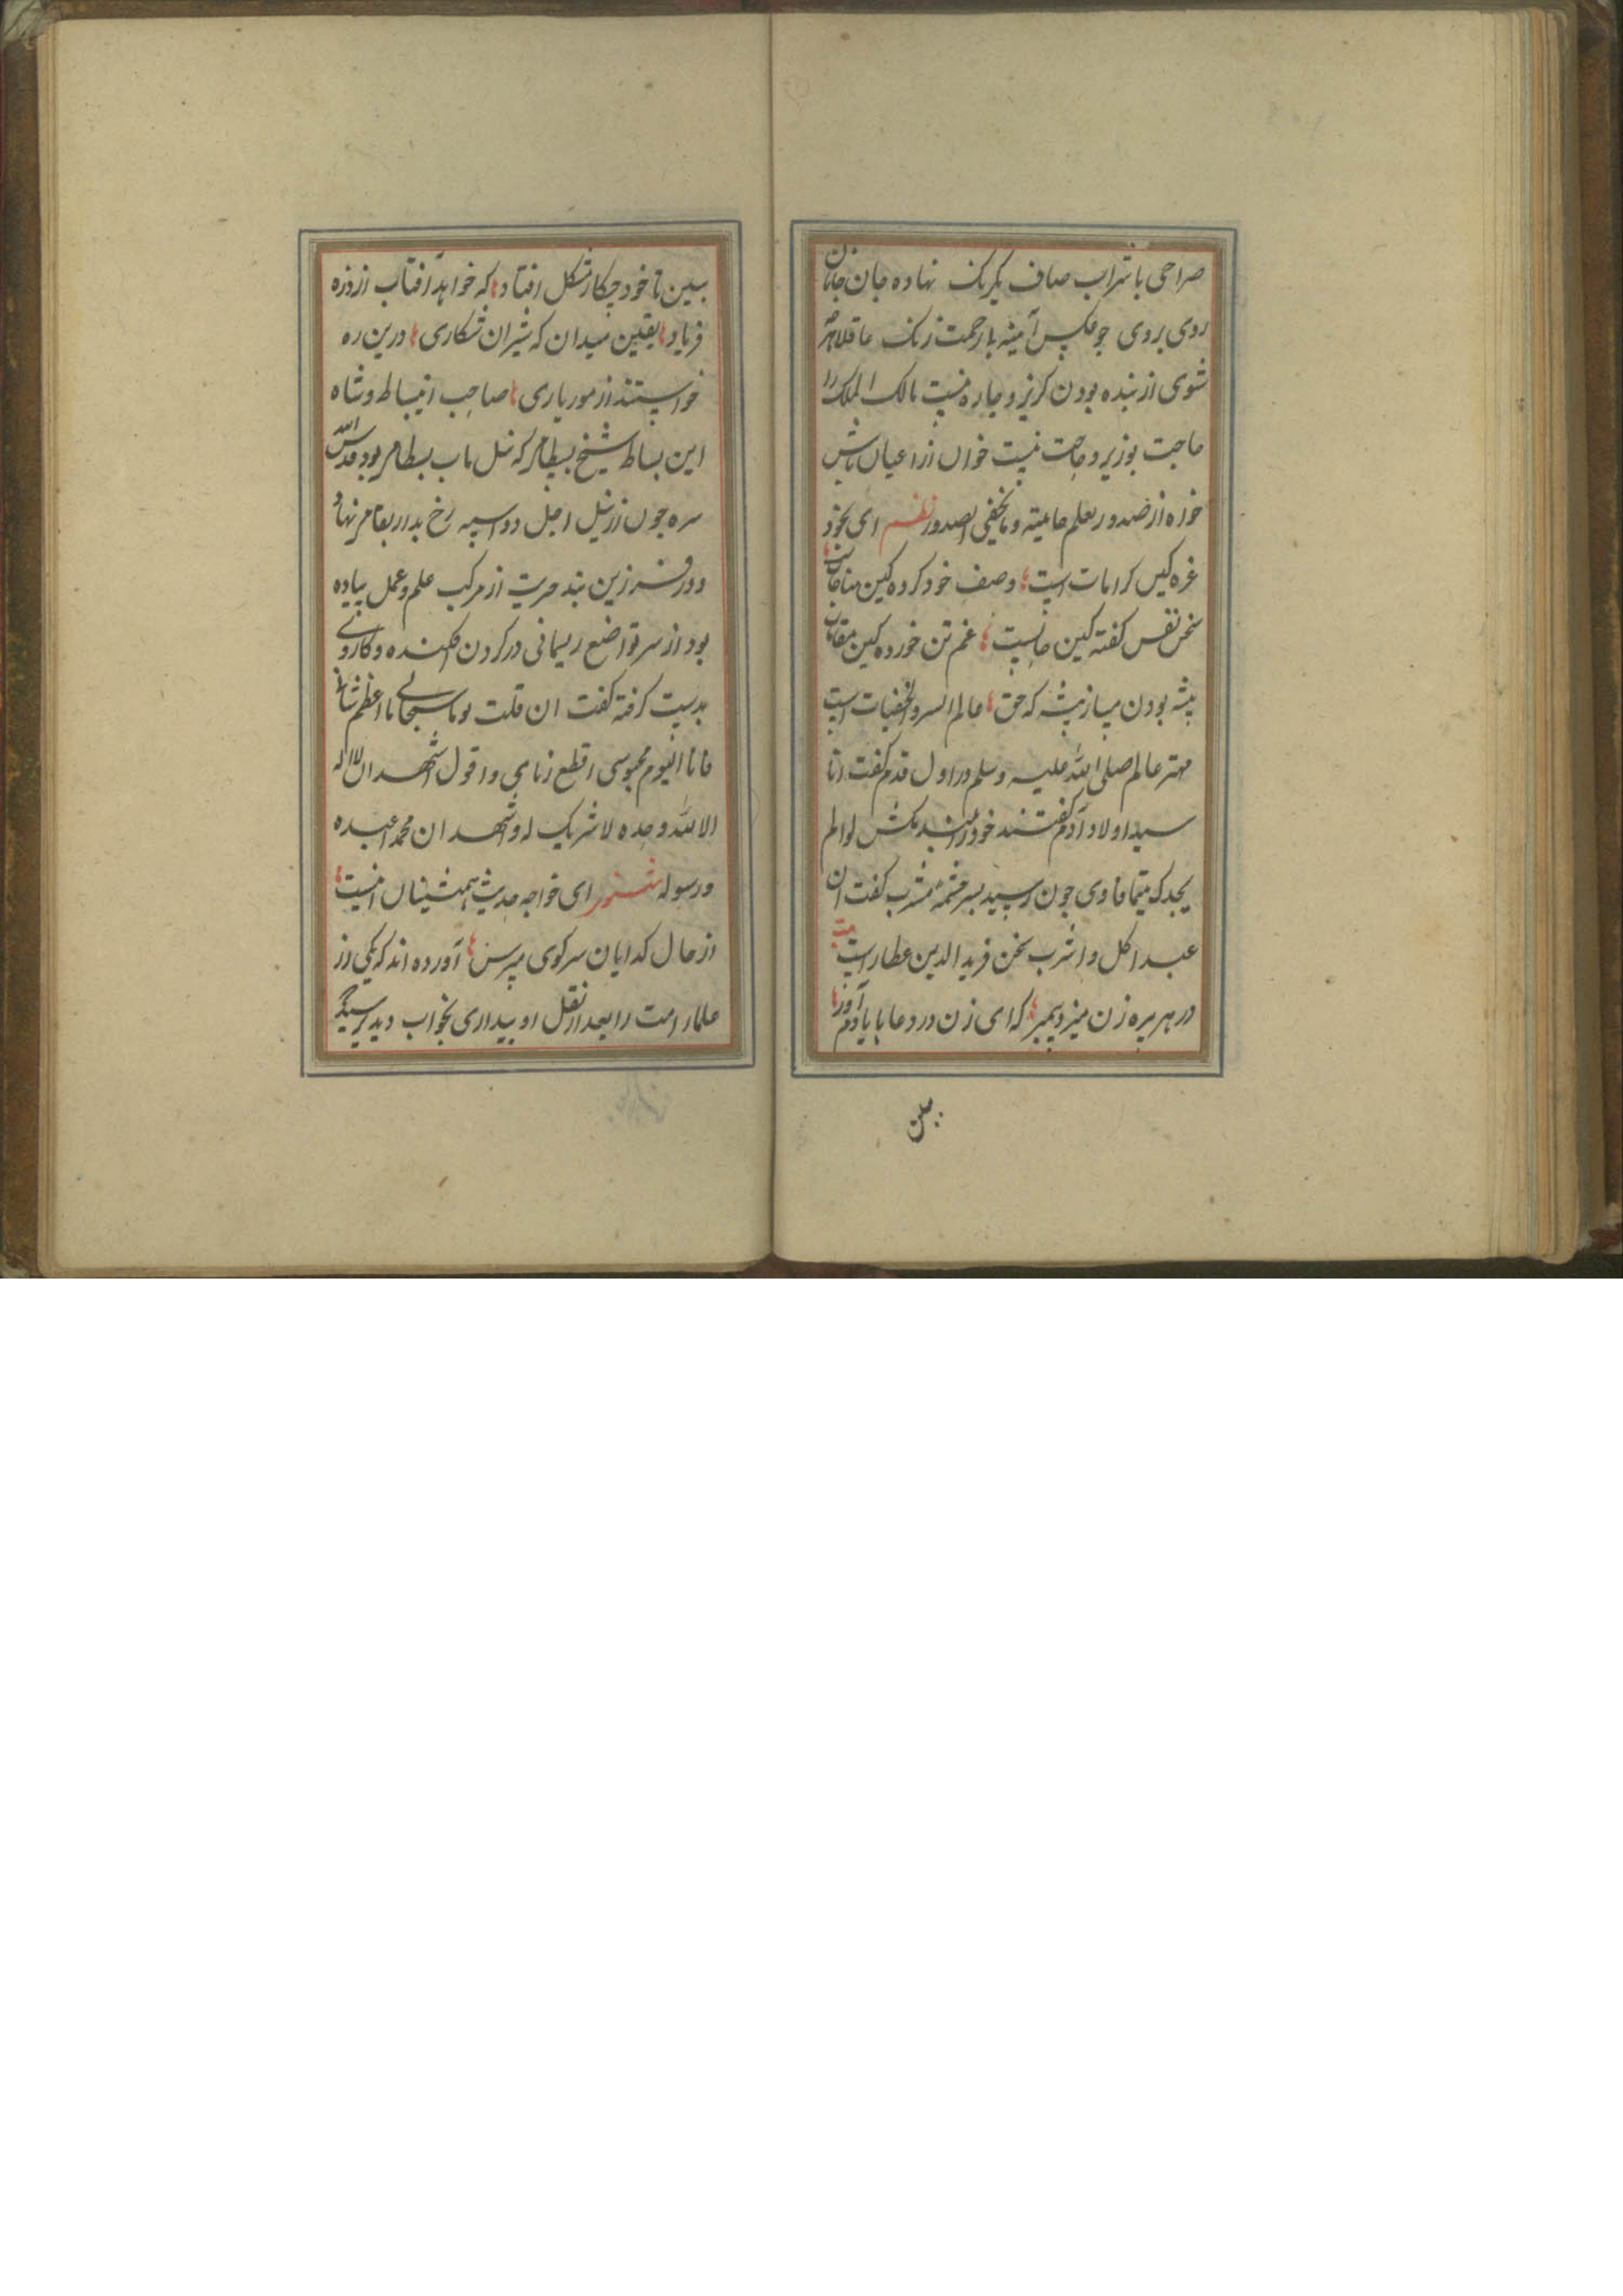 صراحی با شراب صاف یکرنک نهاده جان جانان
روی بروی چو عکس آینه بازحمت زنک عاقلا هر
شوی از بنده بودن کریز و چاره نیست مالک الملک را
حاجت بوزیر و حاجت نیست خوان از اعیان باش
خواه از صدور یعلم خاینه و ما تخفی الصدور نظم ای بخود
غره کین کرامات است وصف خود کرده کین مناجات
سخن نفس کفته کین حالست غم تن خورده کین مقامات
پیشه بودن میساز پیشه که حق عالم السر و الخفیات است
مهتر عالم صلی الله علیه وسلم در اول قدم کفت انا
سید اولاد آدم کفتند خود را مکش لوا الم
یجدک یتیما فاوی چون رسید بسر چشمه مشرب کفت ان
عبد اکل و اشرب سخن فرید الدین عطار است
در هر پیره زن میزد پیمبر که ای زن در دعا با یاد آور
ببین
ببین تا خود چکار مشکل افتاد که خواهد آفتاب از ذره
فریاد یقین میدان که شیران شکاری درین ره
خواستند از مور یاری صاحب انبساط و شاه
این بساط شیخ بسطام که نیل باب بسطام بود قدس الله
سره چون از نیل اجل دو اسپه رخ بدار بقا می نهاد
و در فرزین بند حیرت از مرکب علم و عمل پیاده
بود از سر تواضع ریسمانی در کردن افکنده و کاردی
بدست کرفته کفت ان قلت یوما سبحانی ما اعظم شانی
فانا الیوم مجوسی اقطع زناری و اقول اشهد ان لا اله
الا الله وحده لا شریک له و اشهد ان محمدا عبده
و رسوله ای خواجه حدیث همنشینان نیست
از حال کدایان سر کوی مپرس آورده اند که یکی از
علمار امت را بعد از نقل او بیداری بخواب دید پرسید که